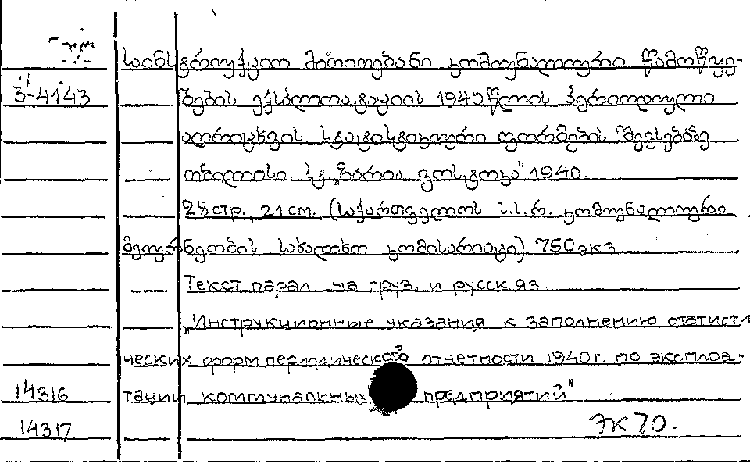 საინსტრუქციო მითითებანი კომუნალური წამოწყე-
3-4143 ბების ექსპლოატაციის 1940 წლის პერიოდული
აღრიცხვის სტატისტიკური ფორმების შევსებაზე
თბილისი სტ. „ზარია ვოსტოკა" 1940.
28 стр. 21 см. (საქართველოს ს.ს.რ. კომუნალური
მეურნეობის სახალხო კომისარიატი) 750 экз
Текст парал. на груз. и русск яз.
„Инструкционные указания к заполнению статисти
ческих форм периодической отчетности 1940 г. по эксплоа-
14316 тации коммунальных предприятий"
14317 ЭК 70.